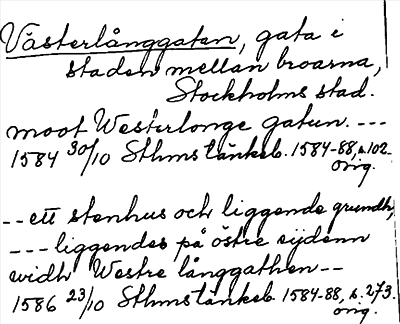 Västerlånggatan, gata i
staden mellan broarna,
Stockholms stad.
moot Westerlonge gatun. ---
1584 30/10 Sthms tänkeb. 1584-88, s. 102.
orig.
-- ett stenhus och liggende grundh,
--- liggendes på östre sijdenn
widh Westre långgathen --
1586 23/10 Sthms tänkeb. 1584-88, s. 273.
orig.